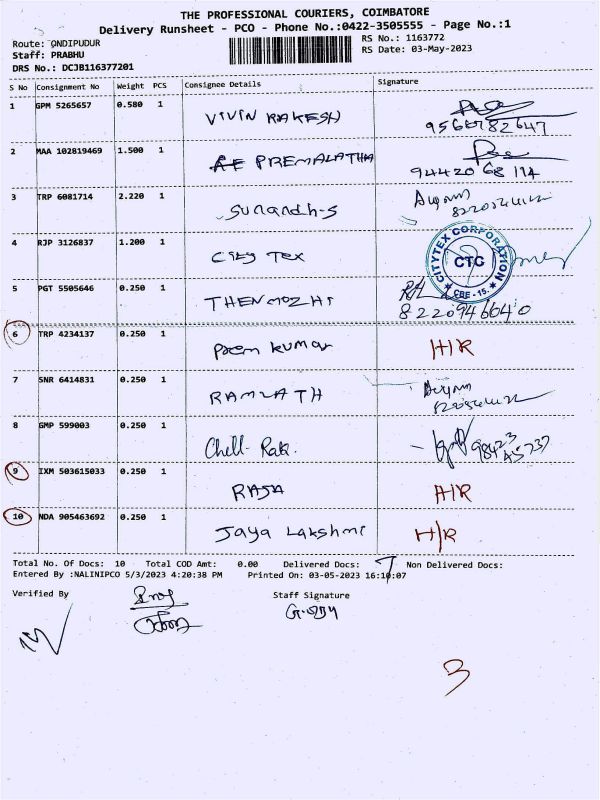 THE PROFESSIONAL COURIERS, COIMBATORE
Delivery Runsheet - PCO - Phone No.:0422-3505555 - Page No.:1
Route: ONDIPUDUR
Staff: PRABHU
DRS No.: DCJB116377201
RS No.: 1163772
RS Date: 03-May-2023
S No Consignment No Weight PCS Consignee Details Signature
1 GPM 5265657 0.580 1 VIVIN RAKESH
2 MAA 102819469 1.500 1 PREMALATHA 94420 68 114
3 TRP 6081714 2.220 1 Sunandh-S
4 RJP 3126837 1.200 1 City Tex CITYTEX CORPORATION CTC CBE - 15.
5 PGT 5505646 0.250 1 THENMOZHI 8220946640
6 TRP 4234137 0.250 1 Prem kumar H/R
7 SNR 6414831 0.250 1 RAMLATH
8 GMP 599003 0.250 1 98423 45737
9 IXM 503615033 0.250 1 RAJA A/R
10 NDA 905463692 0.250 1 Jaya Lakshmi H/R
Total No. Of Docs: 10 Total COD Amt: 0.00 Delivered Docs: 7 Non Delivered Docs:
Entered By :NALINIPCO 5/3/2023 4:20:38 PM Printed On: 03-05-2023 16:10:07
Verified By Staff Signature
3